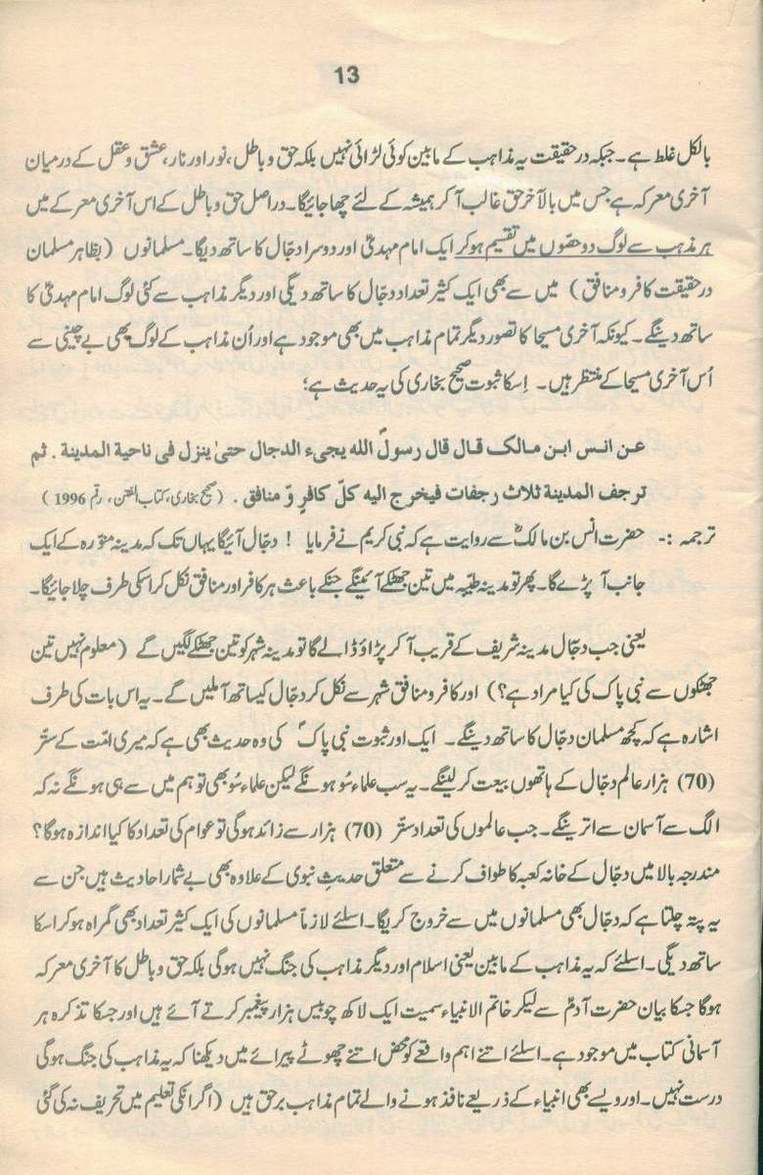 13
بالکل غلط ہے۔ جبکہ درحقیقت یہ مذاہب کے مابین کوئی لڑائی نہیں بلکہ حق و باطل، نور اور نار، عشق و عقل کے درمیان
آخری معرکہ ہے جس میں بالآخر حق غالب آ کر ہمیشہ کے لئے چھا جائیگا۔ دراصل حق و باطل کے اس آخری معرکے میں
ہر مذہب سے لوگ دو حصّوں میں تقسیم ہو کر ایک امام مہدیؑ اور دوسرا دجّال کا ساتھ دیگا۔ مسلمانوں (بظاہر مسلمان
درحقیقت کافر و منافق) میں سے بھی ایک کثیر تعداد دجّال کا ساتھ دیگی اور دیگر مذاہب سے کئی لوگ امام مہدیؑ کا
ساتھ دینگے۔ کیونکہ آخری مسیحا کا تصور دیگر تمام مذاہب میں بھی موجود ہے اور اُن مذاہب کے لوگ بھی بے چینی سے
اُس آخری مسیحا کے منتظر ہیں۔ اِسکا ثبوت صحیح بخاری کی یہ حدیث ہے؛
عن انس ابن مالک قال قال رسولؐ الله یجیء الدجال حتیٰ ینزل فی ناحیة المدینة . ثم
ترجف المدینة ثلاث رجفات فیخرج الیه کلّ کافرٍ وّ منافق . (صحیح بخاری، کتاب الفتن، رقم 1996)
ترجمہ :- حضرت انس بن مالکؓ سے روایت ہے کہ نبی کریم نے فرمایا ! دجّال آئیگا یہاں تک کہ مدینہ منوّرہ کے ایک
جانب آ پڑے گا۔ پھر تو مدینہ طیّبہ میں تین جھٹکے آئینگے جنکے باعث ہر کافر اور منافق نکل کر اسکی طرف چلا جائیگا۔
یعنی جب دجّال مدینہ شریف کے قریب آ کر پڑاؤ ڈالے گا تو مدینہ شہر کو تین جھٹکے لگیں گے (معلوم نہیں تین
جھٹکوں سے نبی پاک کی کیا مراد ہے؟) اور کافر و منافق شہر سے نکل کر دجّال کیساتھ آ ملیں گے۔ یہ اس بات کی طرف
اشارہ ہے کہ کچھ مسلمان دجّال کا ساتھ دینگے۔ ایک اور ثبوت نبی پاکؐ کی وہ حدیث بھی ہے کہ میری امّت کے ستّر
(70) ہزار عالم دجّال کے ہاتھوں بیعت کر لینگے۔ یہ سب علماءِ سُو ہونگے لیکن علماءِ سُو بھی تو ہم میں سے ہی ہونگے نہ کہ
الگ سے آسمان سے اترینگے۔ جب عالموں کی تعداد ستّر (70) ہزار سے زائد ہوگی تو عوام کی تعداد کا کیا اندازہ ہوگا؟
مندرجہ بالا میں دجّال کے خانہ کعبہ کا طواف کرنے سے متعلق حدیثِ نبوی کے علاوہ بھی بے شمار احادیث ہیں جن سے
یہ پتہ چلتا ہے کہ دجّال بھی مسلمانوں میں سے خروج کریگا۔ اسلئے لازماً مسلمانوں کی ایک کثیر تعداد بھی گمراہ ہو کر اسکا
ساتھ دیگی۔ اسلئے کہ یہ مذاہب کے مابین یعنی اسلام اور دیگر مذاہب کی جنگ نہیں ہوگی بلکہ حق و باطل کا آخری معرکہ
ہوگا جسکا بیان حضرت آدمؑ سے لیکر خاتم الانبیاء سمیت ایک لاکھ چوبیس ہزار پیغمبر کرتے آئے ہیں اور جسکا تذکرہ ہر
آسمانی کتاب میں موجود ہے۔ اسلئے اتنے اہم واقعے کو محض اتنے چھوٹے پیرائے میں دیکھنا کہ یہ مذاہب کی جنگ ہوگی
درست نہیں۔ اور ویسے بھی انبیاء کے ذریعے نافذ ہونے والے تمام مذاہب برحق ہیں (اگر انکی تعلیم میں تحریف نہ کی گئی